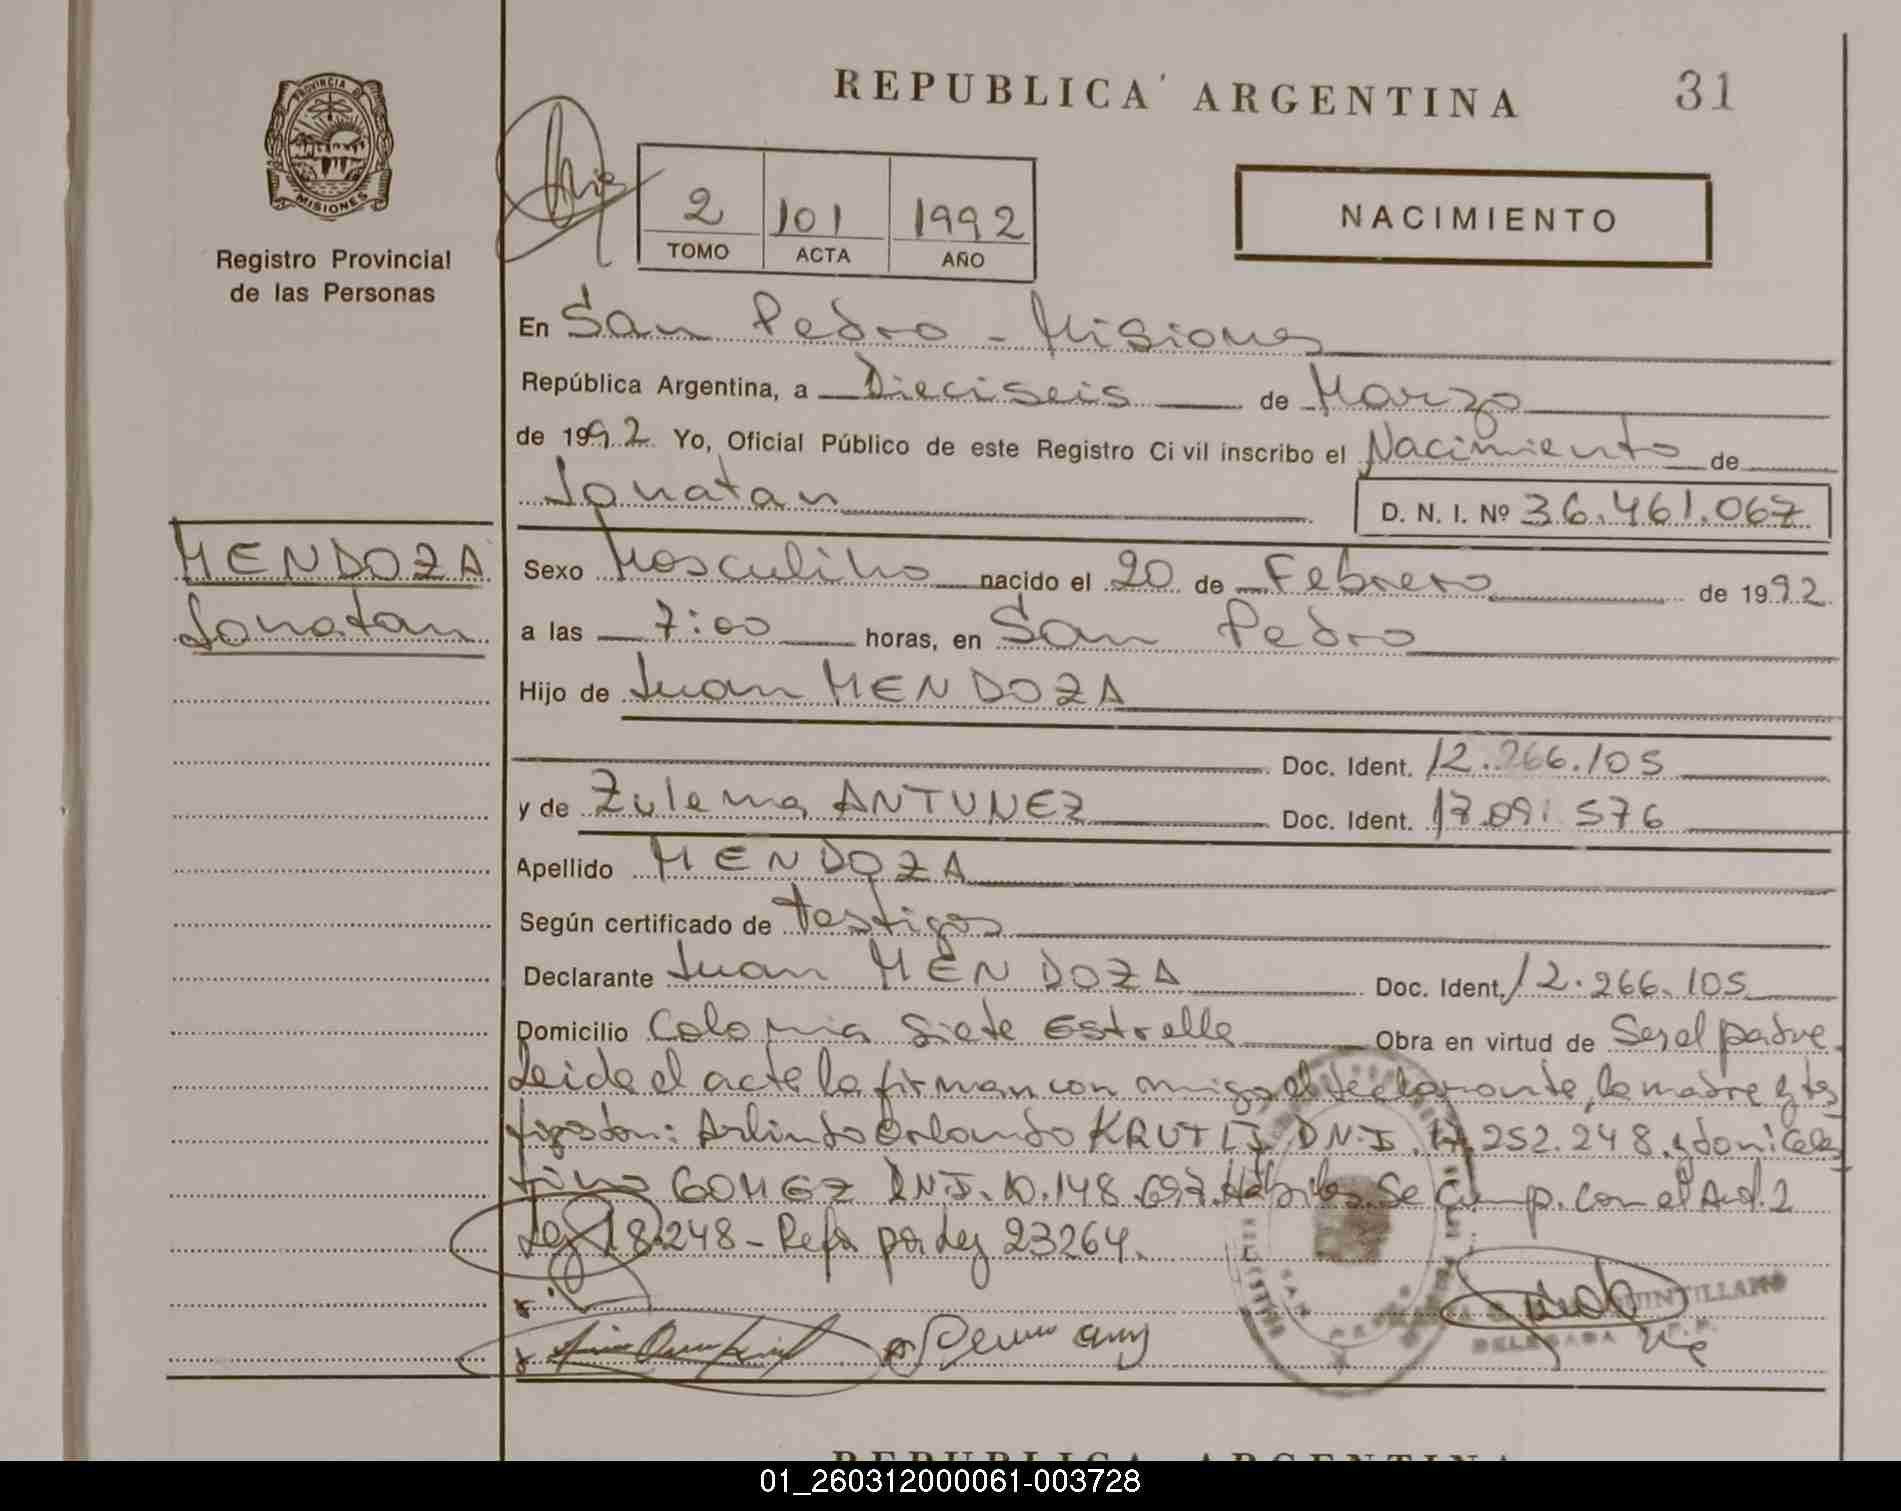 REPUBLICA ARGENTINA
31
PROVINCIA DE
MISIONES
Registro Provincial
de las Personas
2 101 1992
TOMO ACTA AÑO
NACIMIENTO
En San Pedro - Misiones
República Argentina, a Dieciseis de Marzo
de 1992 Yo, Oficial Público de este Registro Civil inscribo el Nacimiento de
Jonatan
D. N. I. Nº 36.461.067
MENDOZA
Jonatan
Sexo Masculino nacido el 20 de Febrero de 1992
a las 7:00 horas, en San Pedro
Hijo de Juan MENDOZA
Doc. Ident. 12.266.105
y de Zulema ANTUNEZ Doc. Ident. 17.091.576
Apellido MENDOZA
Según certificado de testigos
Declarante Juan MENDOZA Doc. Ident. 12.266.105
Domicilio Colonia Siete Estrella Obra en virtud de Ser el padre
Leida el acta la firman con migo el declarante, la madre y tes
tigos don: Arlindo Orlando D.N.I. 252.248 y don Celes
tino GOMEZ D.N.I. 10.148.697. Habiles. Se Cump. con el Art. 2
Ley 18.248 - Refr por Ley 23264.
QUINTILLANO
DELEGADA
REPUBLICA ARGENTINA
01_260312000061-003728